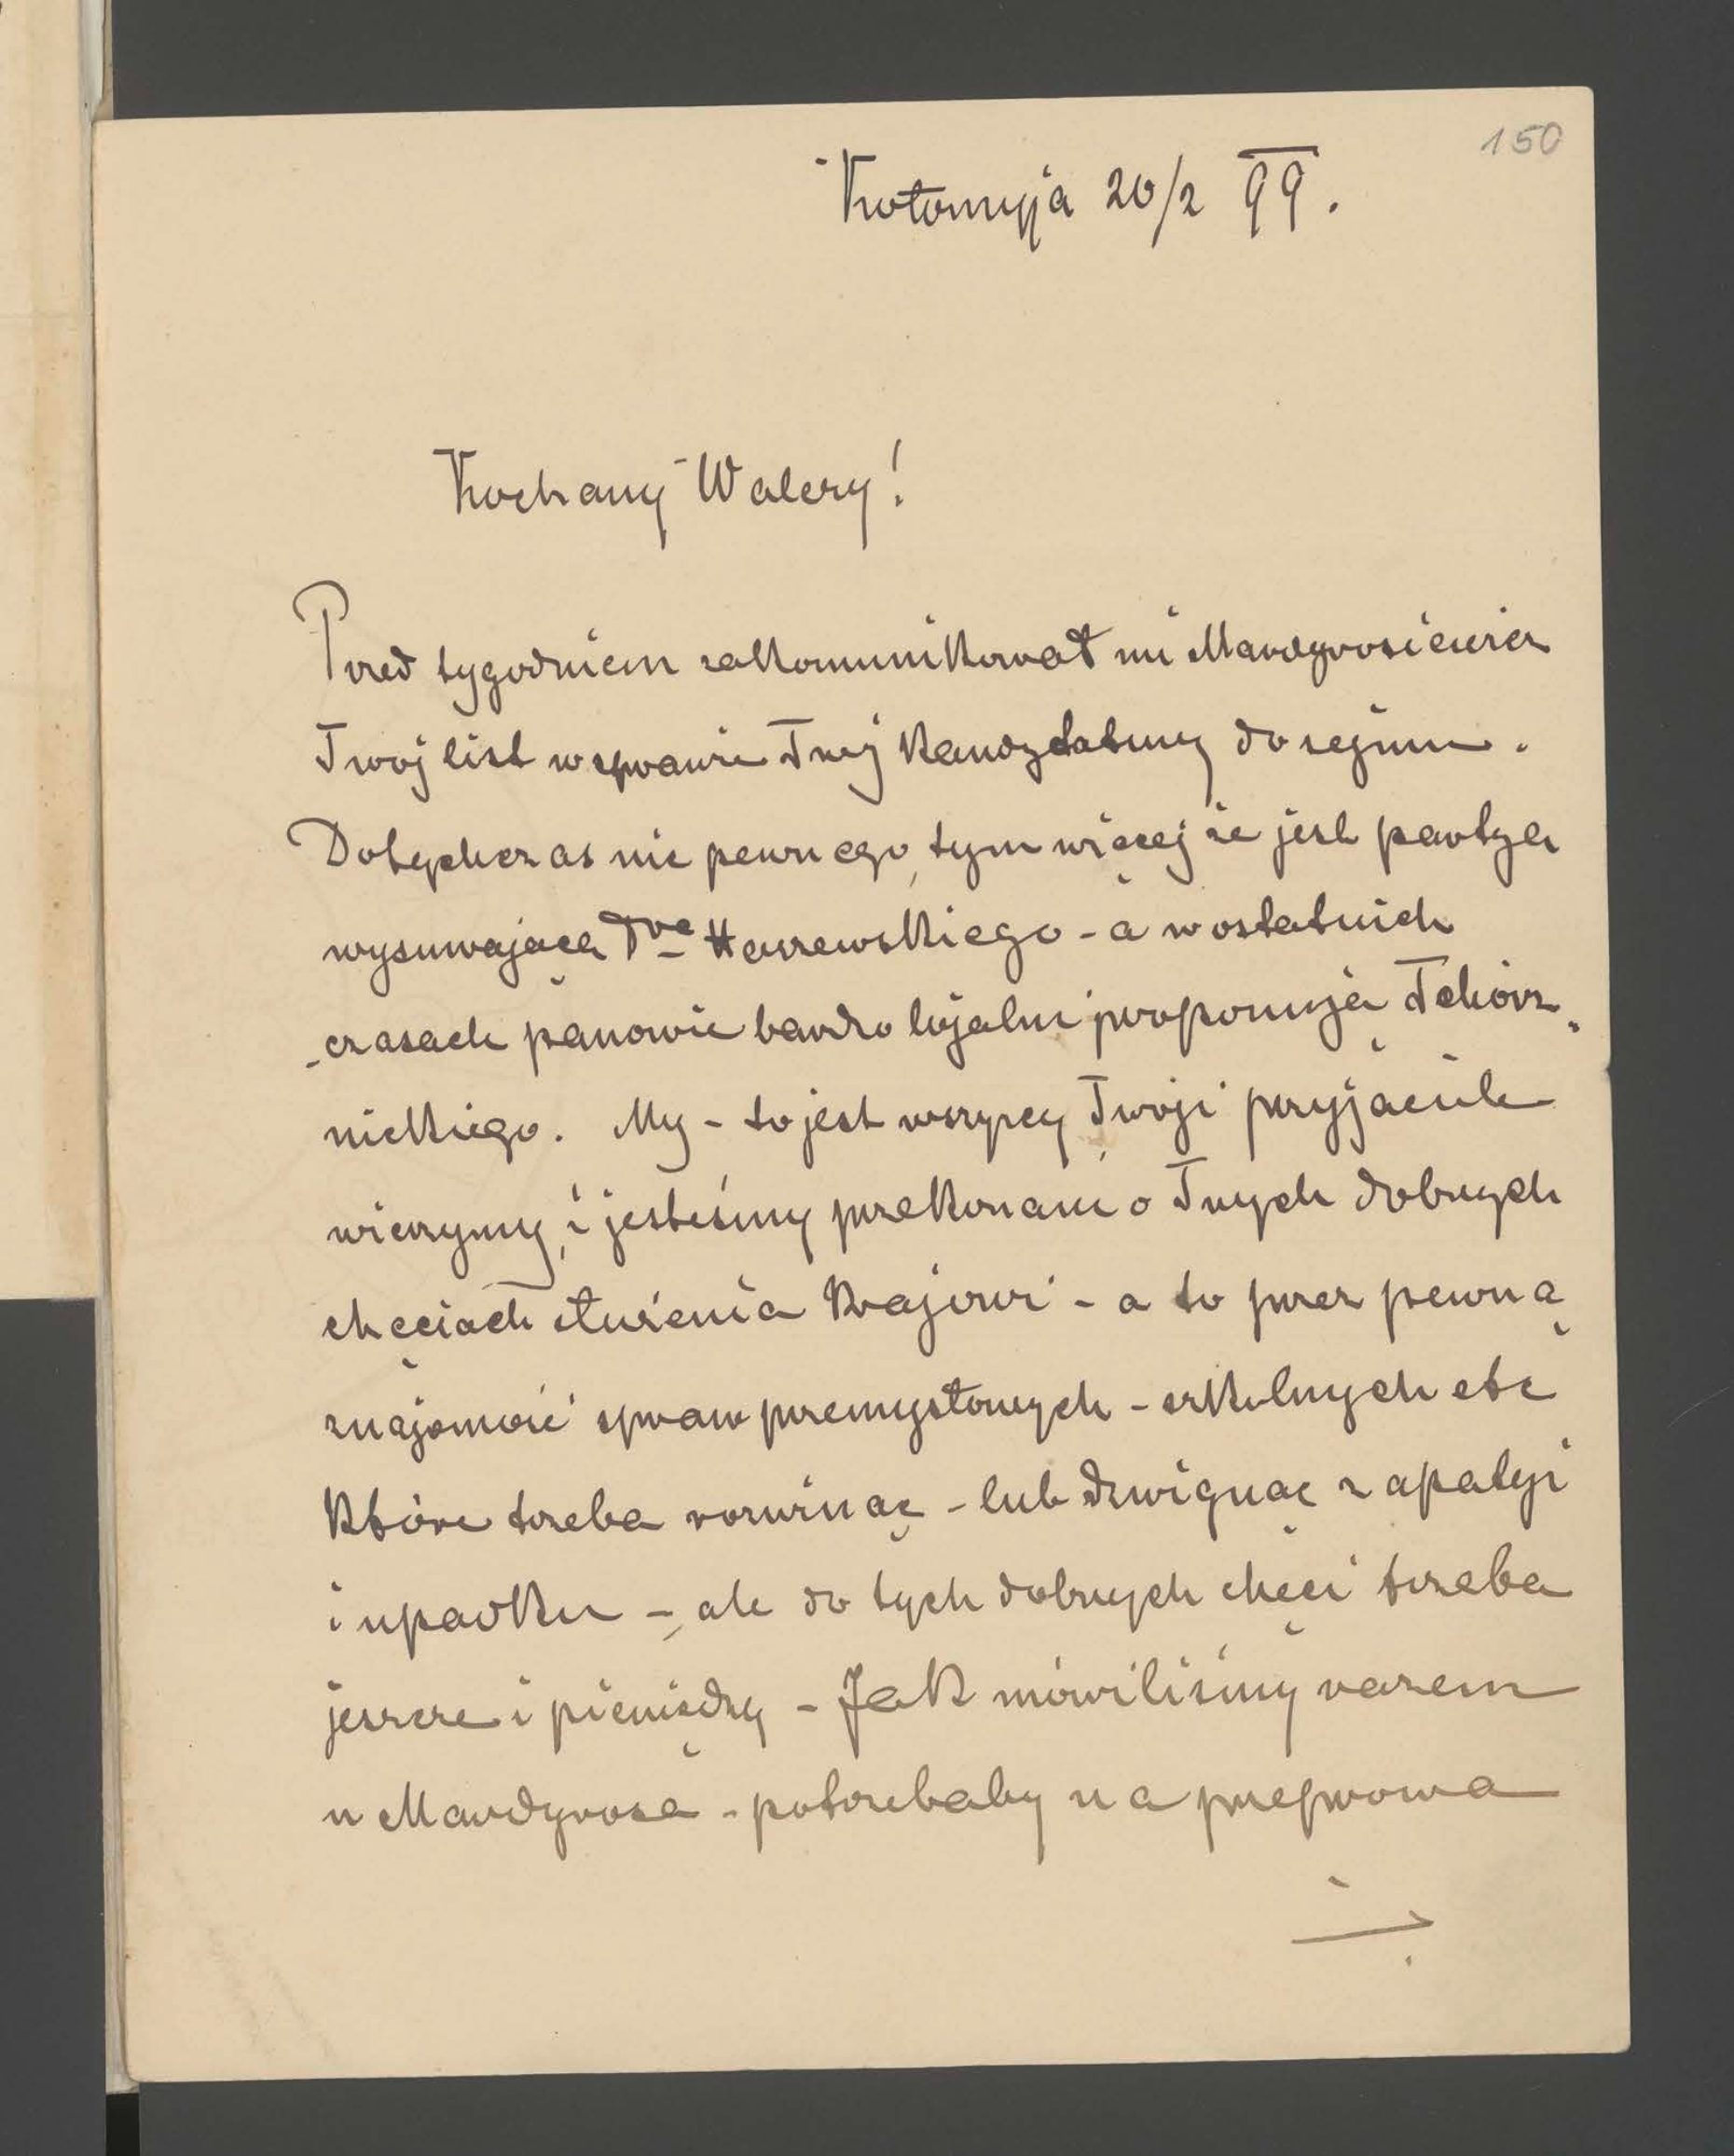 150
Kołomyja 20/2 99.
Kochany Walery!
Przed tygodniem zakomunikował mi Mardyrosiewicz
Twój list w sprawie Twej kandydatury do sejmu.
Dotychczas nic pewnego, tym więcej że jest partya
wysuwająca Dra Haszewskiego - a w ostatnich
czasach panowie bardzo lojalni proponują Tchórz-
nickiego. My - to jest wszyscy Twoji przyjaciele
wierzymy, i jesteśmy przekonani o Twych dobrych
chęciach służenia krajowi - a to przez pewną
znajomość spraw przemysłowych - szkolnych etc
które trzeba rozwinąć - lub dźwignąć z apatyi
i upadku -, ale do tych dobrych chęci trzeba
jeszcze i pieniędzy - Jak mówiliśmy razem
u Mardyrosa - potrzebaby na przeprowa